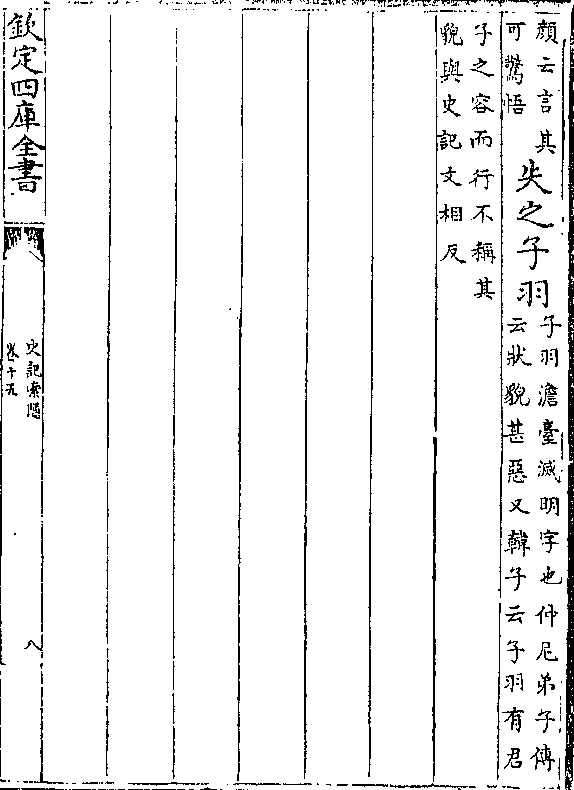 顔云言其
可驚悟
失之子羽
子羽澹臺滅明字也仲尼弟子傳
云狀貌甚惡又韓子云子羽有君
子之容而行不稱其
貌與史記文相反
欽定四庫全書
史記索隱
卷十五
八